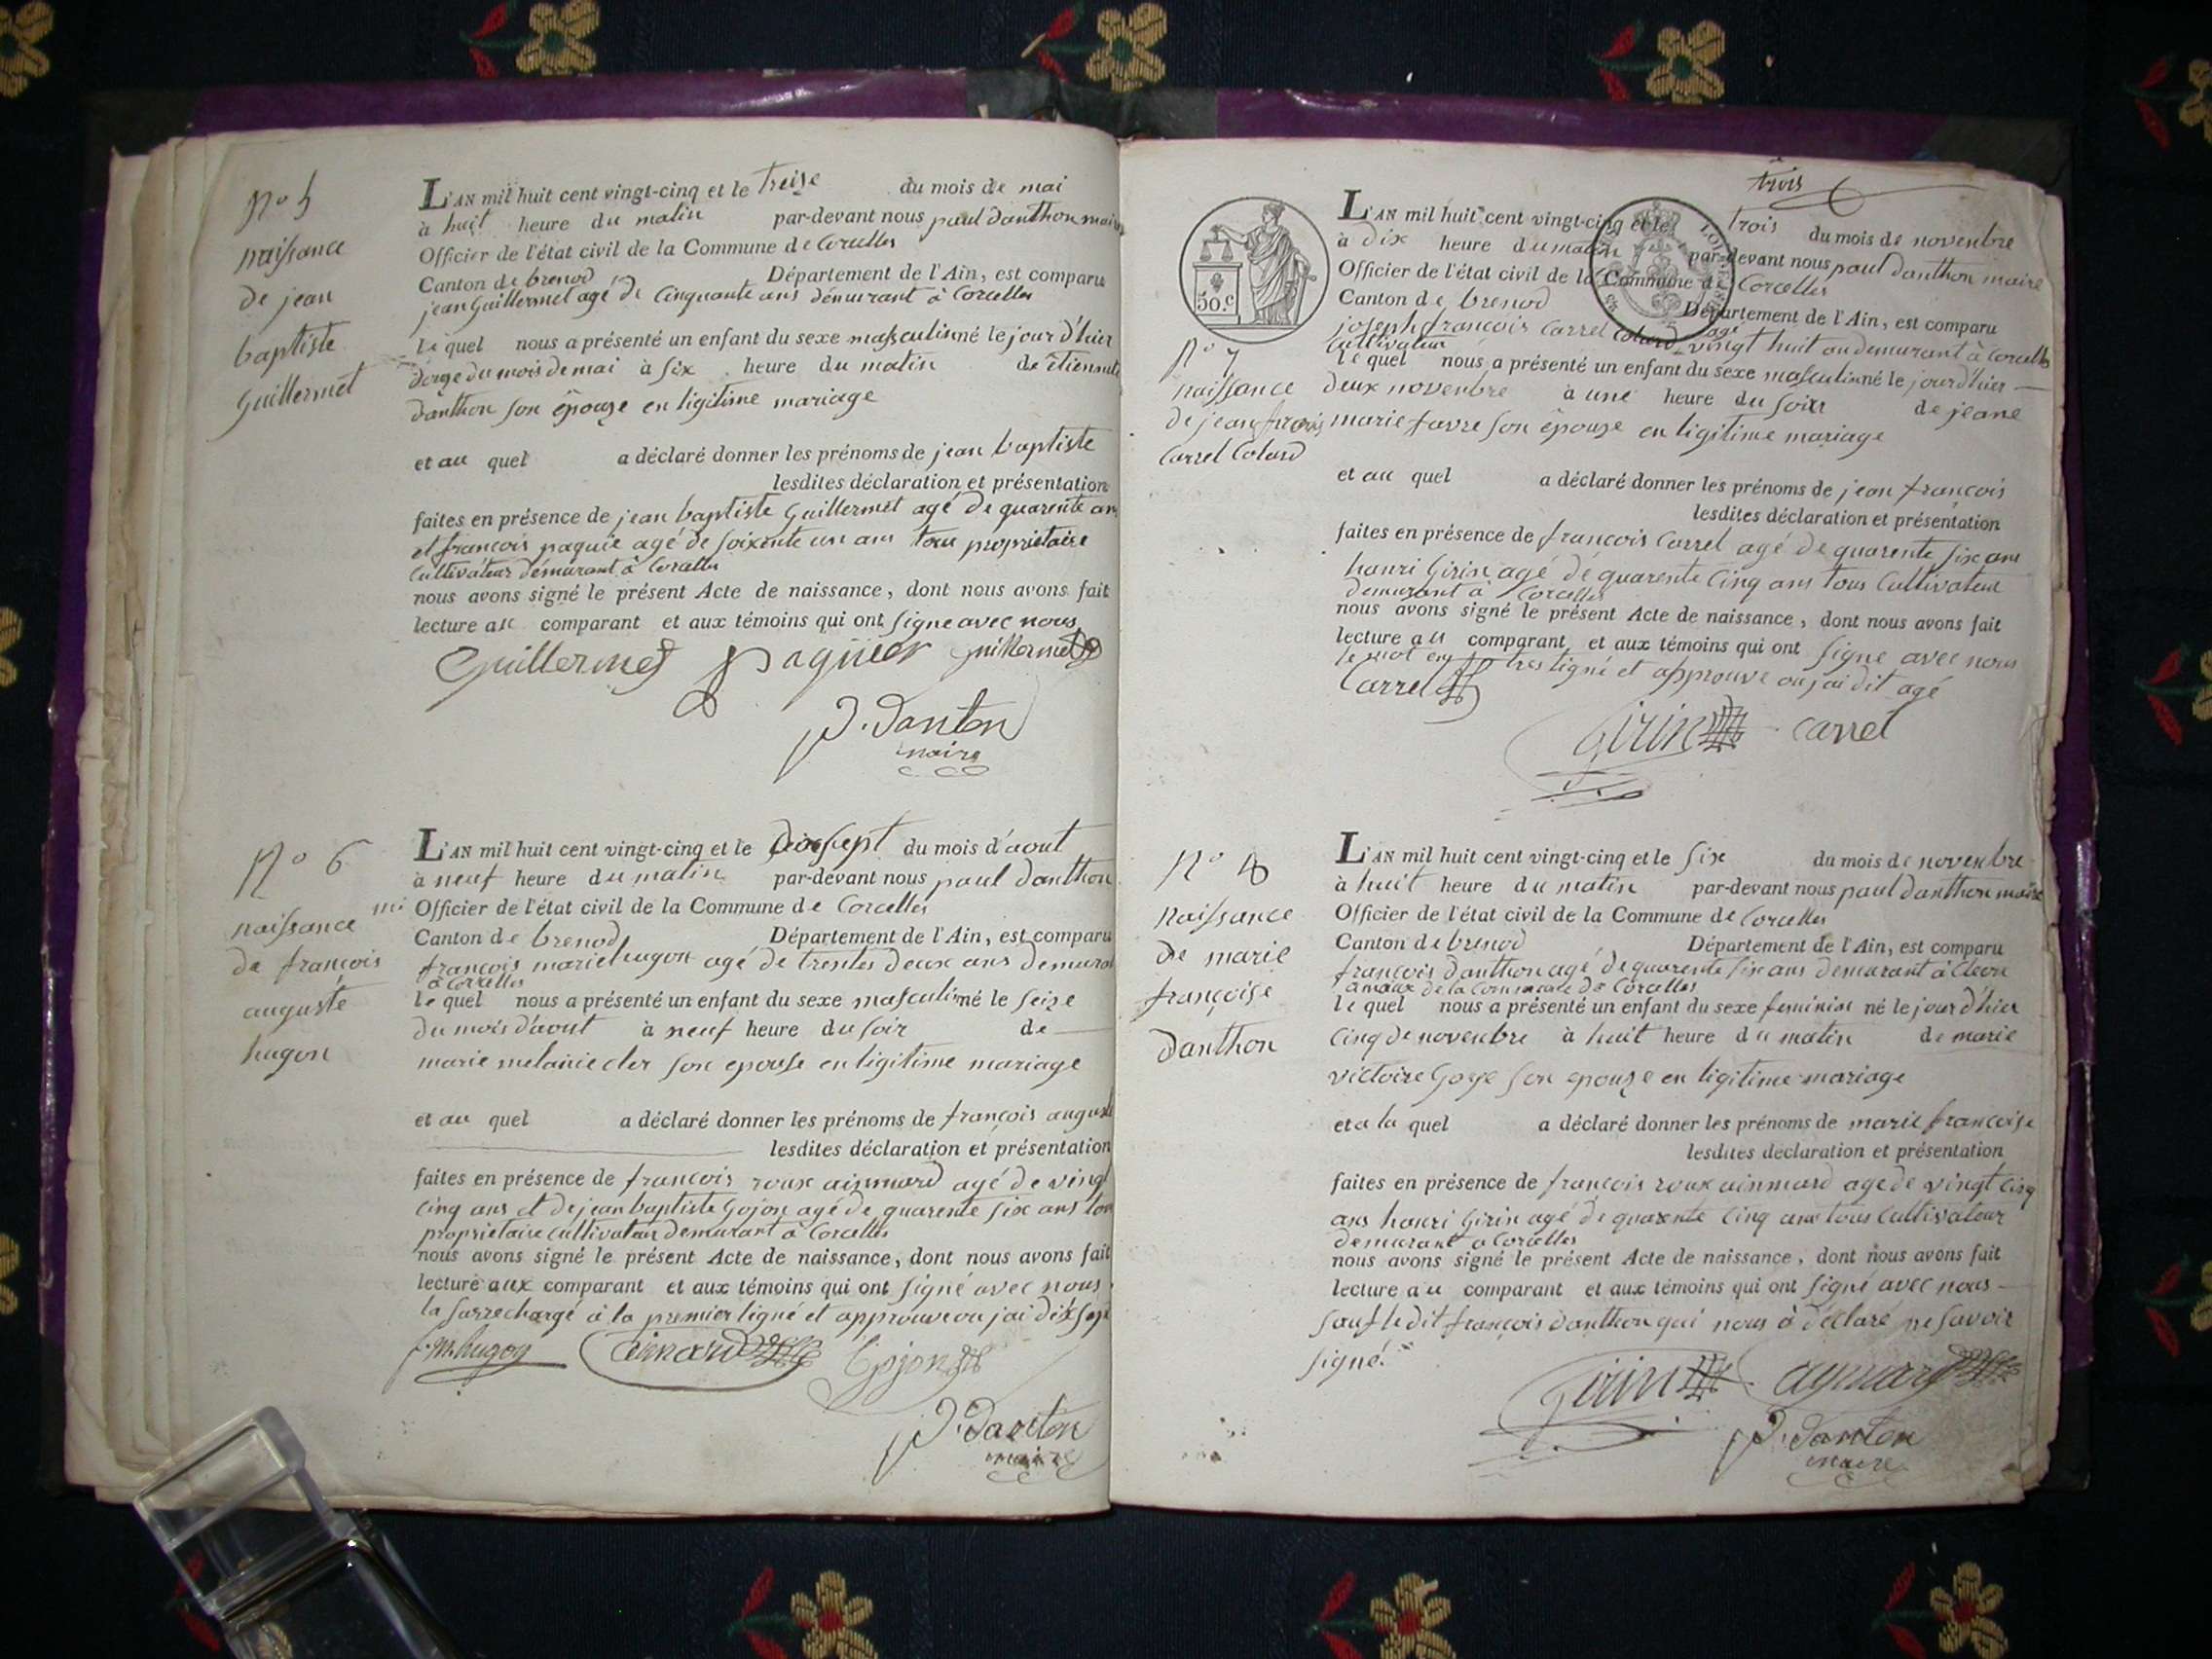 N.º 5
naissance
de jean
baptiste
Guillermet
L'AN mil huit cent vingt-cinq et le treize du mois de mai
à huit heure du matin par-devant nous paul danthon maire
Officier de l'état civil de la Commune de Corcelles
Canton de brenod Département de l'Ain, est comparu
jean Guillermet agé de Cinquante ans démurant à Corcelles
le quel nous a présenté un enfant du sexe masculin né le jour d'hier
douze du mois de mai à six heure du matin de étiennete
danthon son épouze en ligitime mariage
et au quel a déclaré donner les prénoms de jean baptiste
lesdites déclaration et présentation
faites en présence de jean baptiste Guillermet agé de quarente ans
et francois paquie agé de soixente un ans tous proprietaire
Cultivateur démurant à Corcelles
nous avons signé le présent Acte de naissance, dont nous avons fait
lecture au comparant et aux témoins qui ont signe avec nous
Guillermet paquier guillermet
P. Danton
maire
N.º 6
naissance
de françois
auguste
hugon
L'AN mil huit cent vingt-cinq et le dixsept du mois d'aout
à neuf heure du matin par-devant nous paul danthon
Officier de l'état civil de la Commune de Corcelles
Canton de brenod Département de l'Ain, est comparu
francois marie hugon agé de trentes deux ans demurant
à Corcelles
le quel nous a présenté un enfant du sexe masculin né le seize
du mois d'aout à neuf heure du soir de
marie melanie cler son epouse en ligitime mariage
et au quel a déclaré donner les prénoms de françois auguste
lesdites déclaration et présentation
faites en présence de francois roux ainmard agé de vingt
cinq ans et de jean baptiste Gojon agé de quarente six ans tous
proprietaire Cultivateur demurant à Corcelles
nous avons signé le présent Acte de naissance, dont nous avons fait
lecture aux comparant et aux témoins qui ont signé avec nous
la surrechargé à la premier ligné et approuve ou jai dit dix sept
f. m. hugon Aimard Gojon
P. Danton
maire
trois
50.C
N.º 7
naissance
de jean francois
Carrel Colard
L'AN mil huit cent vingt-cinq et le trois du mois de novenbre
à dix heure du matin par-devant nous paul danthon maire
Officier de l'état civil de la Commune de Corcelles
Canton de brenod Département de l'Ain, est comparu
joseph francois Carrel Colard agé vingt huit an demurant à Corcelles
Cultivateur
le quel nous a présenté un enfant du sexe masculin né le jour d'hier
deux novenbre à une heure du soir de jeane
marie favre son épouze en ligitime mariage
et au quel a déclaré donner les prénoms de jean francois
lesdites déclaration et présentation
faites en présence de francois Carrel agé de quarente six ans
hanri Girin agé de quarente Cinq ans tous Cultivateur
demurant à Corcelles
nous avons signé le présent Acte de naissance, dont nous avons fait
lecture au comparant et aux témoins qui ont signe avec nous
le mot en tres ligné et approuve ou jai dit agé
Carrel
Girin carrel
N.º 8
naissance
de marie
françoise
danthon
L'AN mil huit cent vingt-cinq et le six du mois de novenbre
à huit heure du matin par-devant nous paul danthon maire
Officier de l'état civil de la Commune de Corcelles
Canton de brenod Département de l'Ain, est comparu
francois danthon agé de quarente six ans demurant à
de la Commune de Corcelles
le quel nous a présenté un enfant du sexe feminin né le jour d'hier
Cinq de novenbre à huit heure du matin de marie
victoire Goye son epouze en ligitime mariage
et a la quel a déclaré donner les prénoms de marie françoise
lesdites déclaration et présentation
faites en présence de françois roux ainmard agé de vingt cinq
ans hanri Girin agé de quarente cinq ans tous Cultivateur
demurant à Corcelles
nous avons signé le présent Acte de naissance, dont nous avons fait
lecture au comparant et aux témoins qui ont signé avec nous
sauf le dit françois danthon qui nous à déclaré ne savoir
signé.
Girin aymard
P. Danton
maire